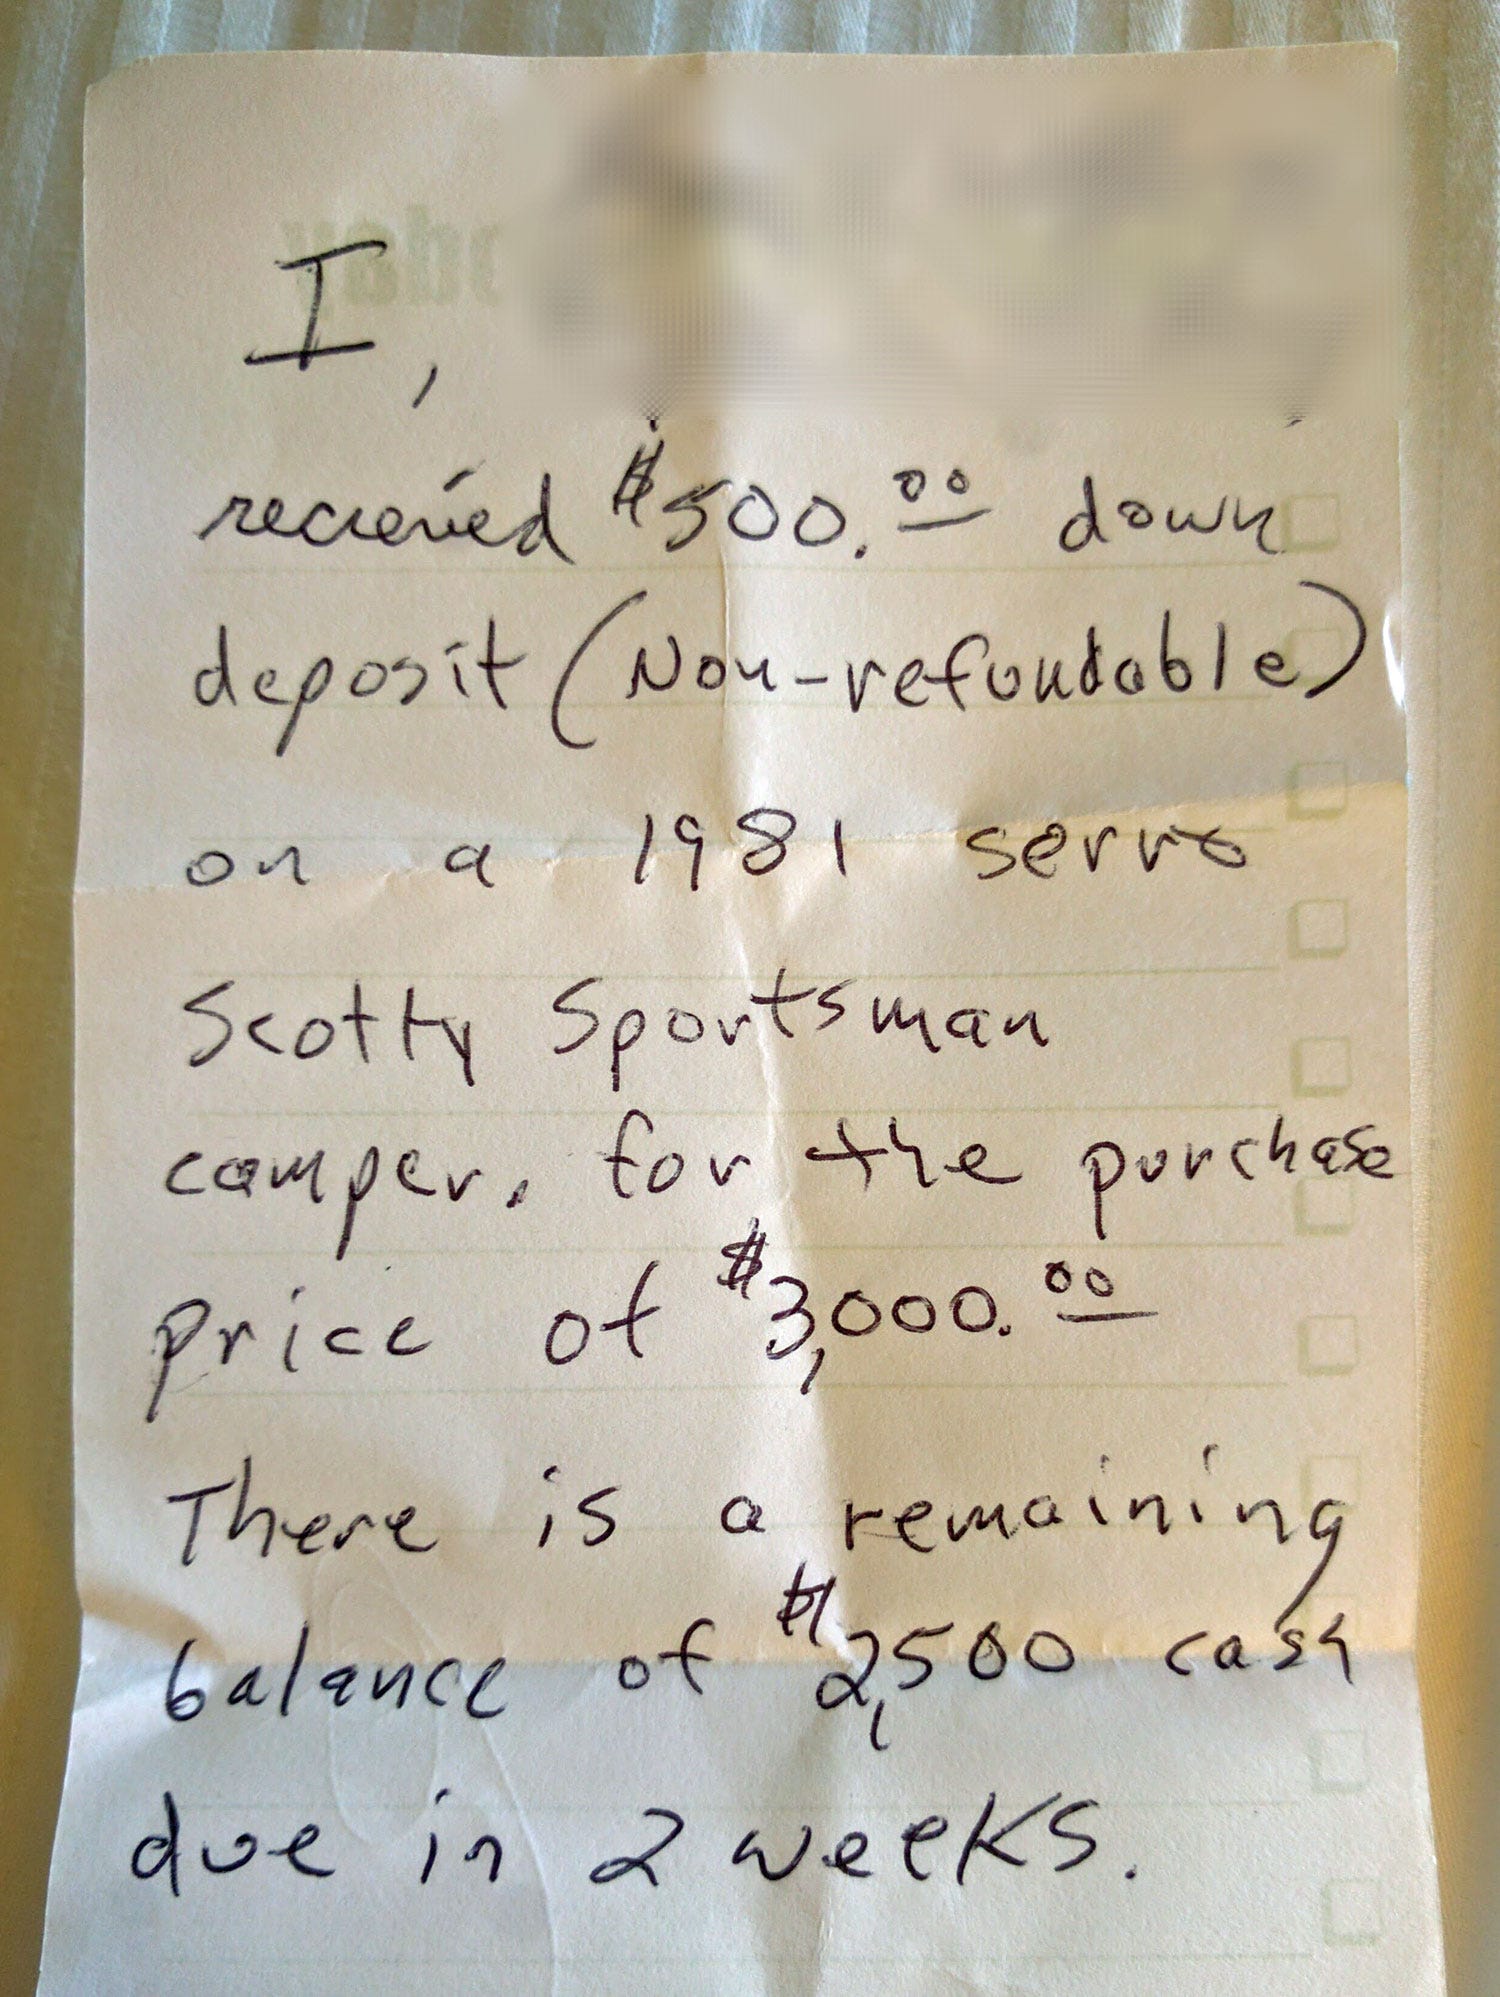 I,
recieved $500.00 down
deposit (Non-refundable)
on a 1981 serro
Scotty Sportsman
camper, for the purchase
price of $3,000.00
There is a remaining
balance of $2,500 cash
due in 2 weeks.